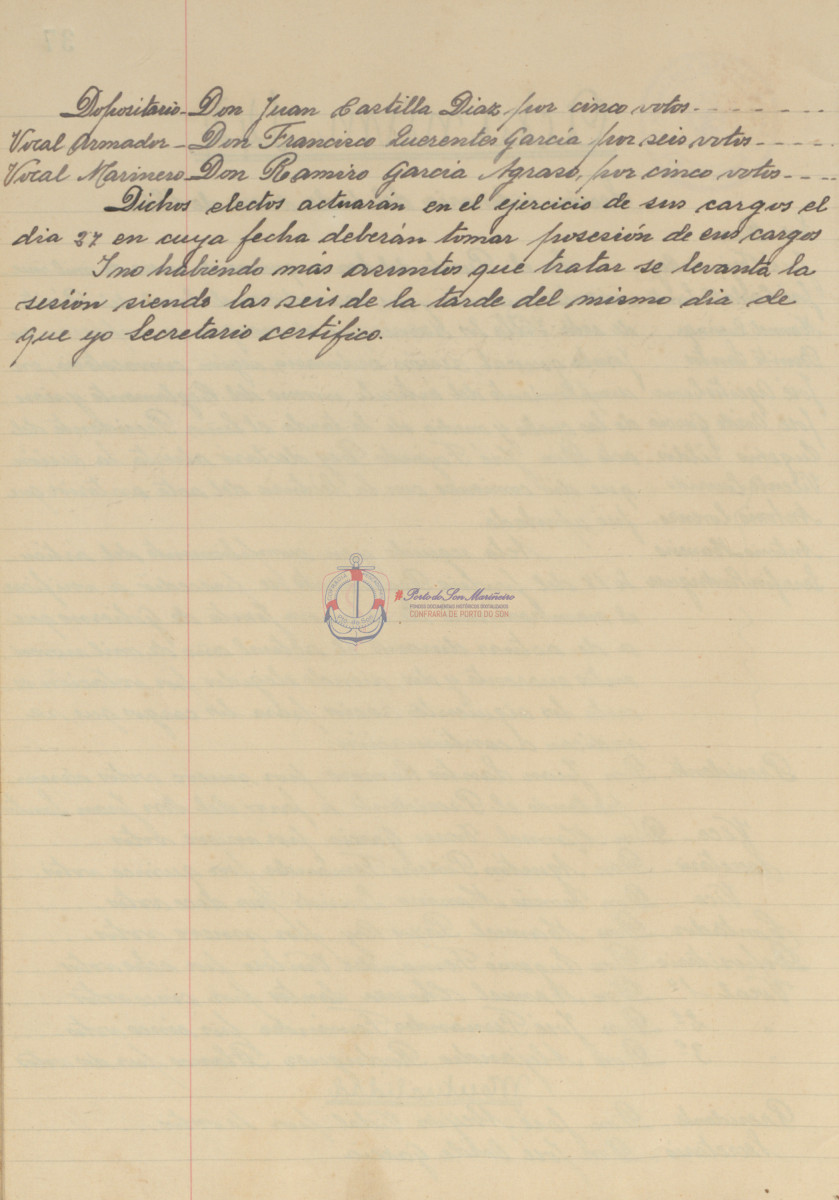 Depositario-Don Juan Castilla Diaz, por cinco votos--------
Vocal Armador-Don Francisco Querentes García por seis votos-----
Vocal Marinero-Don Ramiro García Agraso, por cinco votos----
Dichos electos actuarán en el ejercicio de sus cargos el
dia 27 en cuya fecha deberán tomar posesión de sus cargos
I no habiendo más asuntos que tratar se levanta la
sesión siendo las seis de la tarde del mismo dia de
que yo Secretario certifico.
#Porto do Son Mariñeiro
FONDOS DOCUMENTAIS HISTÓRICOS DIXITALIZADOS
CONFRARÍA DE PORTO DO SON